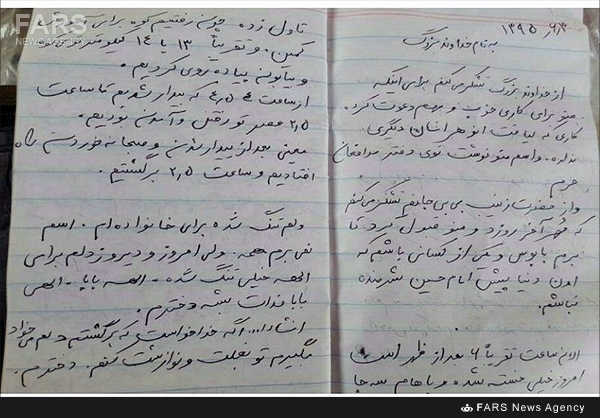 ۱۳۹۵/۶/۳
به نام خداوند بزرگ
از خداوند بزرگ تشکر می کنم برای اینکه
منو برای کاری خوب و مهم دعوت کرده
کاری که لیاقت انو هر انسان دیگری
نداره. واسم منو نوشت توی دفتر مدافعان
حرم.
واز حضرت زینب بی بی جانم تشکر می کنم
که آخر روزد و منو قبول کرد تا
برم پابوس و یکی از کسانی باشم که
اون دنیا پیش امام حسین شرمنده
نباشم.
الان ساعت تقریباً ۶ بعد از ظهر است
امروز خیلی خسته شده و پاهام سه جا
تاول زده. رفتیم کوه برای
کمین. و تقریباً ۱۳ یا ۱۴ کیلومتر
پیاده روی کردیم.
از ساعت ۴ ۴٫۵ که بیدار شدیم تا ساعت
۲٫۵ عصر تو رفتن و آمدن بودیم.
یعنی بعد از بیدار شدن و صبحانه خوردن راه
افتادیم و ساعت ۲٫۵ برگشتیم.
دلم تنگ شده برای خانواده ام. اسم
نمی برم همه. ولی امروز و دیروز دلم برای
الهه خیلی تنگ شده. الهه بابا. الهی
بابا فدات بشه دخترم.
انشاالله اگه خدا خواست که برگشتم دلم می خواد
بگیرم تو بغلت و نوازشت کنم. دخترم.
FARS
NEWS AGENCY
FARS News Agency